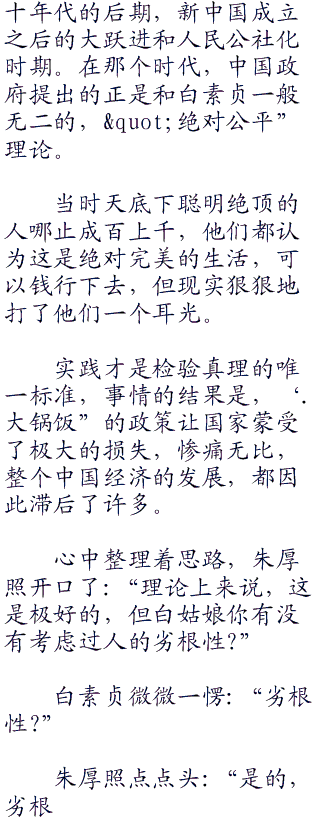 十年代的后期，新中国成立
之后的大跃进和人民公社化
时期。在那个时代，中国政
府提出的正是和白素贞一般
无二的，&quot;绝对公平”
理论。
当时天底下聪明绝顶的
人哪止成百上千，他们都认
为这是绝对完美的生活，可
以钱行下去，但现实狠狠地
打了他们一个耳光。
实践才是检验真理的唯
一标准，事情的结果是，‘.
大锅饭”的政策让国家蒙受
了极大的损失，惨痛无比，
整个中国经济的发展，都因
此滞后了许多。
心中整理着思路，朱厚
照开口了：“理论上来说，这
是极好的，但白姑娘你有没
有考虑过人的劣根性？”
白素贞微微一愣：“劣根
性？”
朱厚照点点头：“是的，
劣根